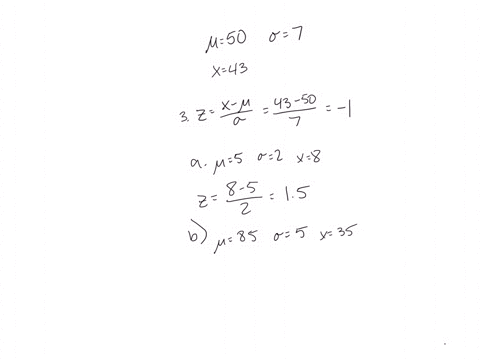 μ=50 σ=7
x=43
3. z= x-μ / σ = 43-50 / 7 = -1
a. μ=5 σ=2 x=8
z= 8-5 / 2 = 1.5
b) μ=85 σ=5 x=35